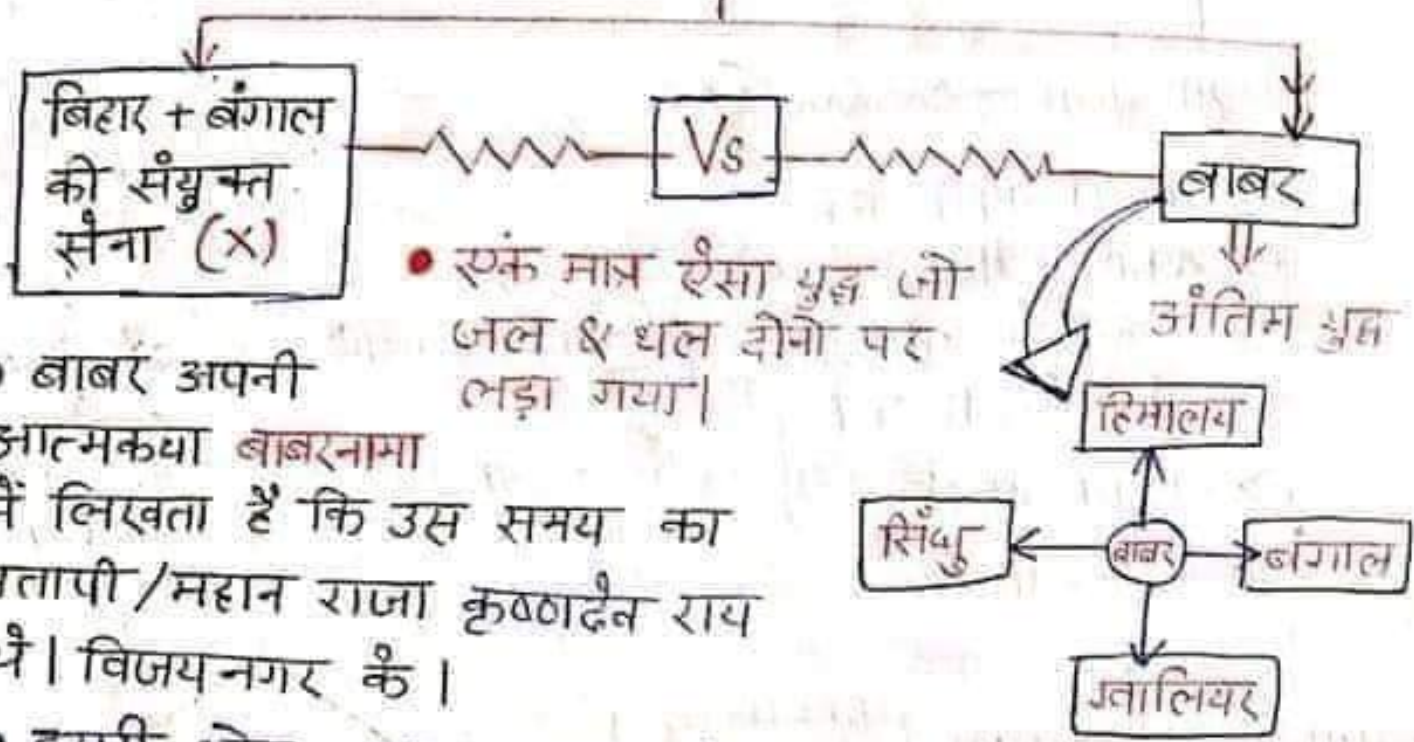 बिहार + बंगाल
की संयुक्त
सेना (x)
Vs
बाबर
अंतिम युद्ध
• एक मात्र ऐसा युद्ध जो
जल & थल दोनो पर
लड़ा गया|
बाबर अपनी
आत्मकथा बाबरनामा
में लिखता है कि उस समय का
/महान राजा कृष्णदेव राय
थे| विजयनगर के|
हिमालय
सिंधु
बाबर
बंगाल
ग्वालियर